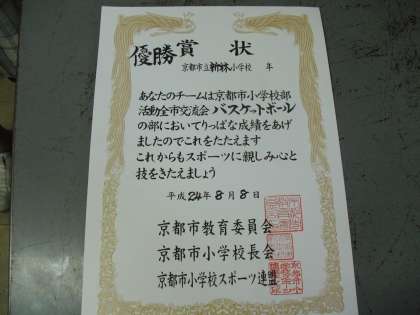 優勝賞状
京都市立新林小学校 年
あなたのチームは京都市小学校部
活動全市交流会バスケットボール
の部においてりっぱな成績をあげ
ましたのでこれをたたえます
これからもスポーツに親しみ心と
技をきたえましょう
平成24年8月8日
京都市教育委員会
京都市小学校長会
京都市小学校スポーツ連盟